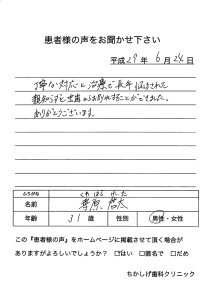 患者様の声をお聞かせ下さい
平成29年6月24日
丁寧な対応と治療で長年悩まされた
親知らずと虫歯からお別れすることができました。
ありがとうございます。
ふりがな
名前
年齢 31歳 性別 男性・女性
この『患者様の声』をホームページに掲載させて頂く場合が
ありますがよろしいでしょうか？ □はい □匿名で □だめ
ちかしげ歯科クリニック